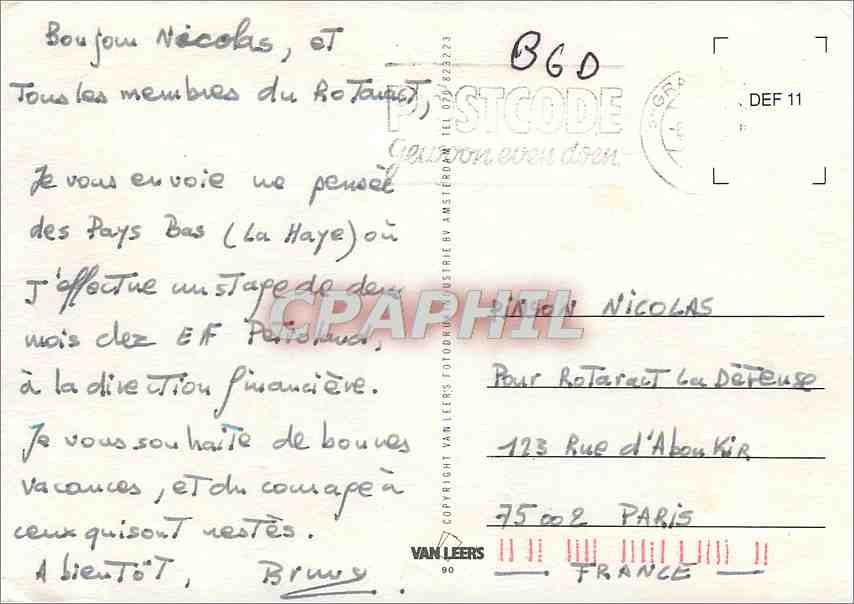 Bonjour Nicolas, et
Tous les membres du Rotaract,
Je vous envoie une pensée
des Pays Bas (La Haye) où
J'effectue un stage de deux
mois chez Elf Petroland,
à la direction financière.
Je vous souhaite de bonnes
vacances, et du courage à
ceux qui sont restés.
A bientôt, Bruno
BGD
POSTCODE
Gewoon even doen
'sGR
DEF 11
CPAPHIL
PINSON NICOLAS
Pour Rotaract La Défense
123 Rue d'Aboukir
75002 PARIS
FRANCE
COPYRIGHT VAN LEER'S FOTODRUKINDUSTRIE BV AMSTERDAM TEL 020 / 823223
VAN LEERS
90